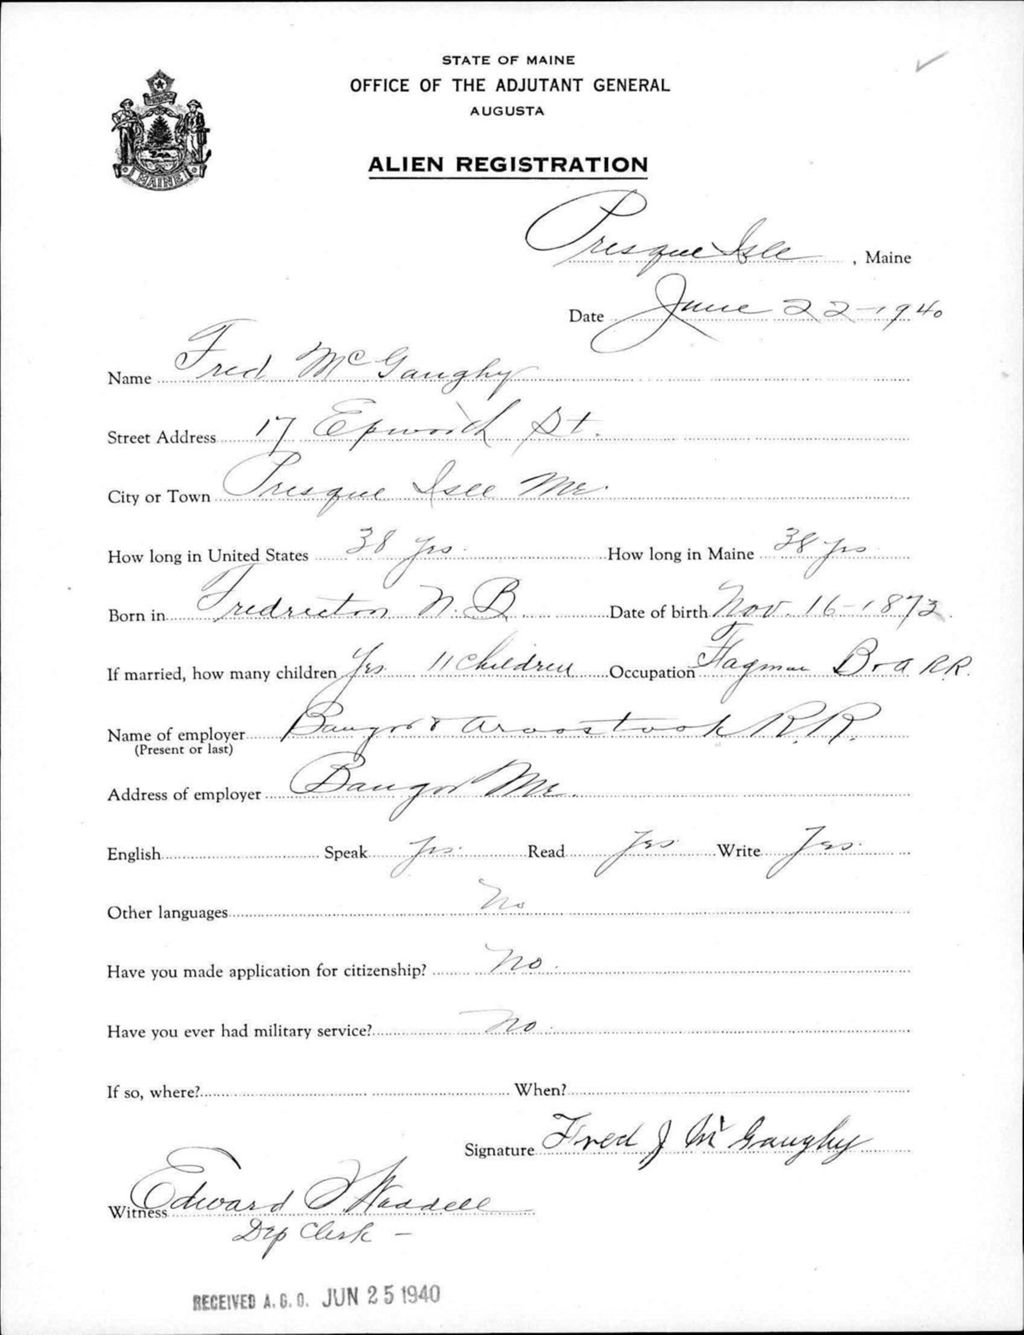 STATE OF MAINE
OFFICE OF THE ADJUTANT GENERAL
AUGUSTA
ALIEN REGISTRATION
MAINE
Presque Isle, Maine
Date June 22-1940
Name Fred McGaughy
Street Address 17 Epworth St.
City or Town Presque Isle Me.
How long in United States 38 yrs. How long in Maine 38 yrs
Born in Fredricton N. B. Date of birth Nov. 16-1873
If married, how many children Yes. 11 children Occupation Flagman B & A RR.
Name of employer Bangor & Aroostook R.R.
(Present or last)
Address of employer Bangor Me.
English Speak Yes. Read Yes Write Yes.
Other languages No
Have you made application for citizenship? No.
Have you ever had military service? No.
If so, where? When?
Signature Fred J McGaughy
Witness Edward Waddell
Dep Clerk -
RECEIVED A. G. O. JUN 25 1940